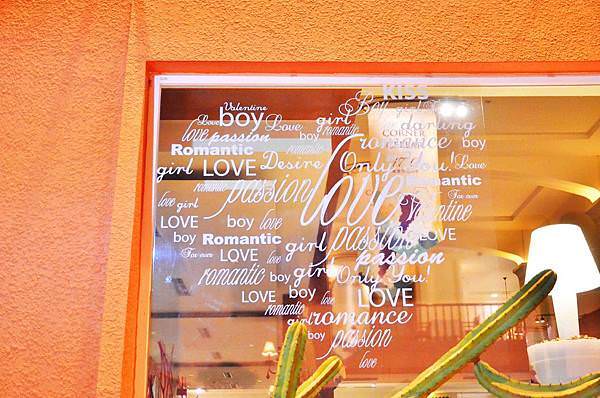 KISS
Valentine
Boy girl
boy Love girl
Love
darling
romantic
CORNER
love passion
romance boy
Romantic
Only You! Love
girl LOVE Desire
romantic
Romantic
love passion love
love girl
Valentine
LOVE boy love
passion LOVE
boy Romantic girl
For ever LOVE love
passion
romantic boy girl Only You!
LOVE boy love LOVE
romantic girl romance
passion
love